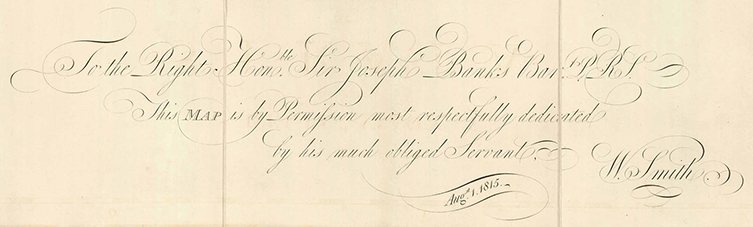 To the Right Hon.ble Sir Joseph Banks Bar.t P.R.S.
This MAP is by Permission most respectfully dedicated
by his much obliged Servant.
W. Smith.
Aug.st 1. 1815.